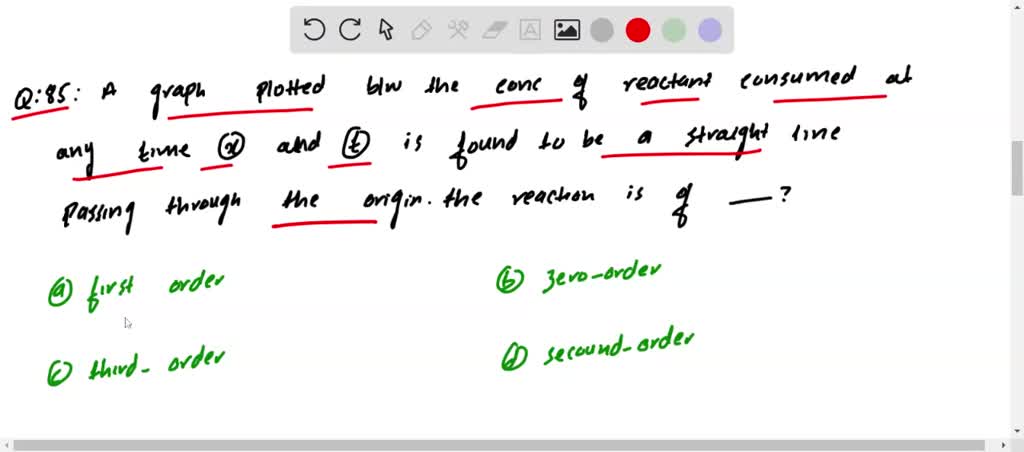 Q:85: A graph plotted b/w the conc of reactant consumed at
any time (x) and (t) is found to be a straight line
passing through the origin. the reaction is of — ?
(a) first order (b) zero-order
(c) third-order (d) secound-order